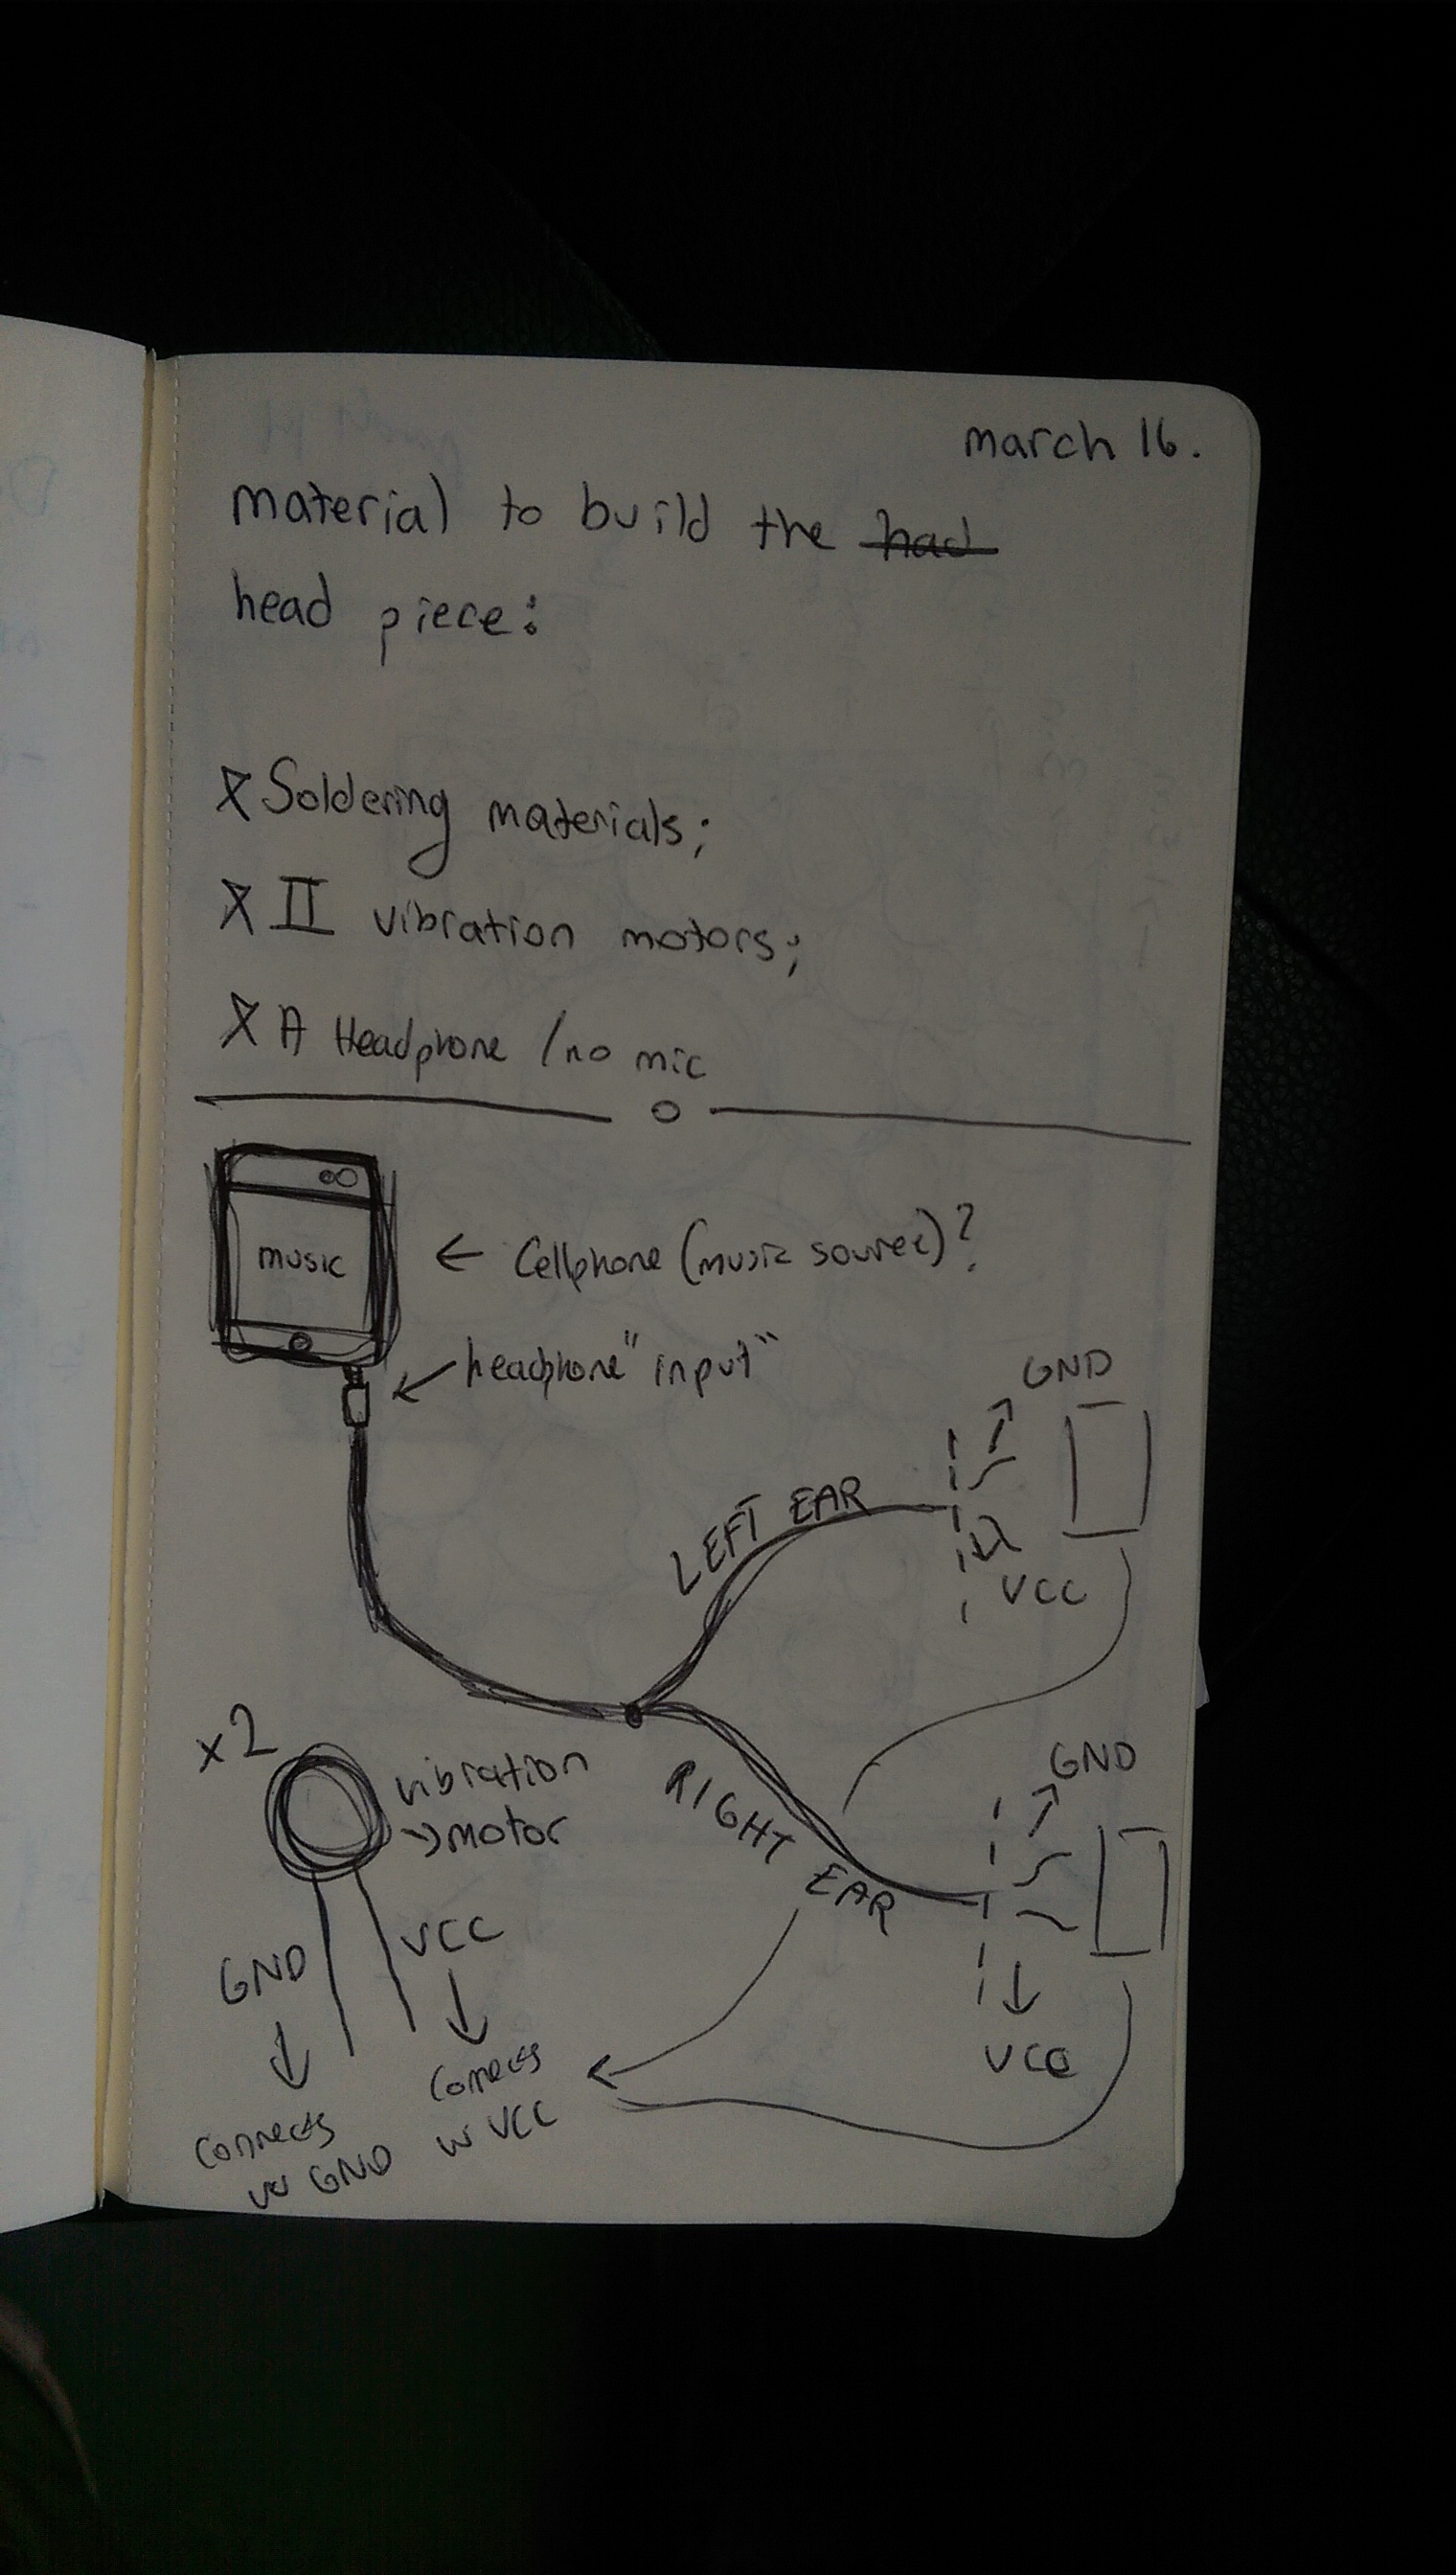 march 16.
material to build the had
head piece:
Soldering materials;
II vibration motors;
A Headphone /no mic
music
← Cellphone (music source)?
headphone "input"
GND
LEFT EAR
VCC
x2
vibration
→motor
RIGHT EAR
GND
VCC
GND
VCC
connects
w GND
connects
w VCC